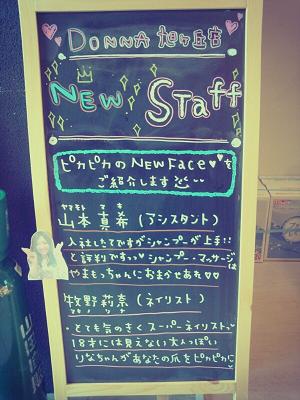 DONNA 旭ヶ丘店
NEW Staff
ピカピカのNEW Face♥♥を
ご紹介します
ヤマモト マキ
山本 真希 (アシスタント)
入社したてですがシャンプーが上手!!
と評判ですっ♥シャンプー・マッサージは
やまもっちゃんにおまかせあれ♡♡
マキノ リナ
牧野 莉奈 (ネイリスト)
・とても気のきくスーパーネイリスト♥
18才には見えない大人っぽい
りなちゃんがあなたの爪をピカピカに